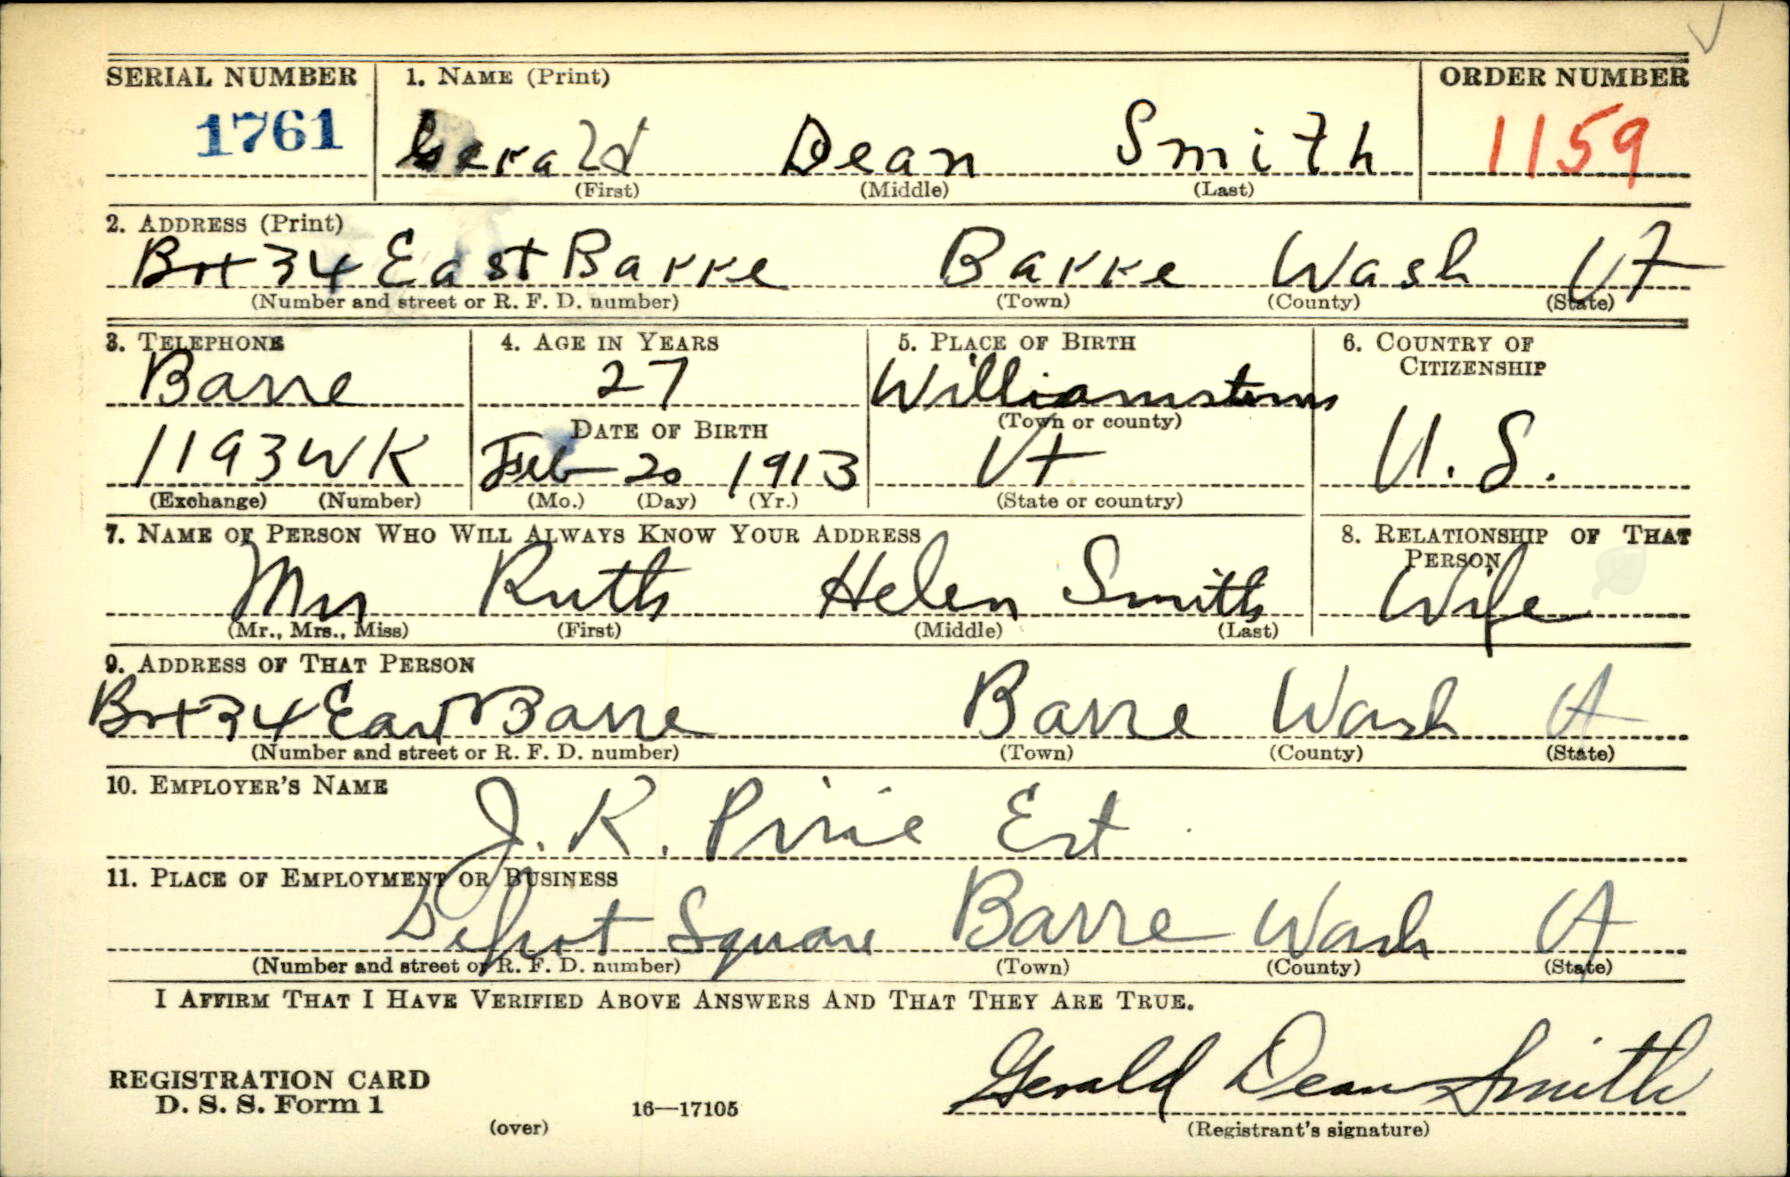 SERIAL NUMBER 1. NAME (Print) ORDER NUMBER
1761 Gerald Dean Smith 1159
(First) (Middle) (Last)
2. ADDRESS (Print)
Box 34 East Barre Barre Wash Vt
(Number and street or R. F. D. number) (Town) (County) (State)
3. TELEPHONE 4. AGE IN YEARS 5. PLACE OF BIRTH 6. COUNTRY OF CITIZENSHIP
Barre 27 Williamstown
DATE OF BIRTH (Town or county)
1193WK Feb 20 1913 Vt U. S.
(Exchange) (Number) (Mo.) (Day) (Yr.) (State or country)
7. NAME OF PERSON WHO WILL ALWAYS KNOW YOUR ADDRESS 8. RELATIONSHIP OF THAT PERSON
Mrs Ruth Helen Smith Wife
(Mr., Mrs., Miss) (First) (Middle) (Last)
9. ADDRESS OF THAT PERSON
Box 34 East Barre Barre Wash Vt
(Number and street or R. F. D. number) (Town) (County) (State)
10. EMPLOYER'S NAME
J. K. Pirie Est
11. PLACE OF EMPLOYMENT OR BUSINESS
Depot Square Barre Wash Vt
(Number and street or R. F. D. number) (Town) (County) (State)
I AFFIRM THAT I HAVE VERIFIED ABOVE ANSWERS AND THAT THEY ARE TRUE.
Gerald Dean Smith
REGISTRATION CARD
D. S. S. Form 1 16—17105
(over) (Registrant's signature)